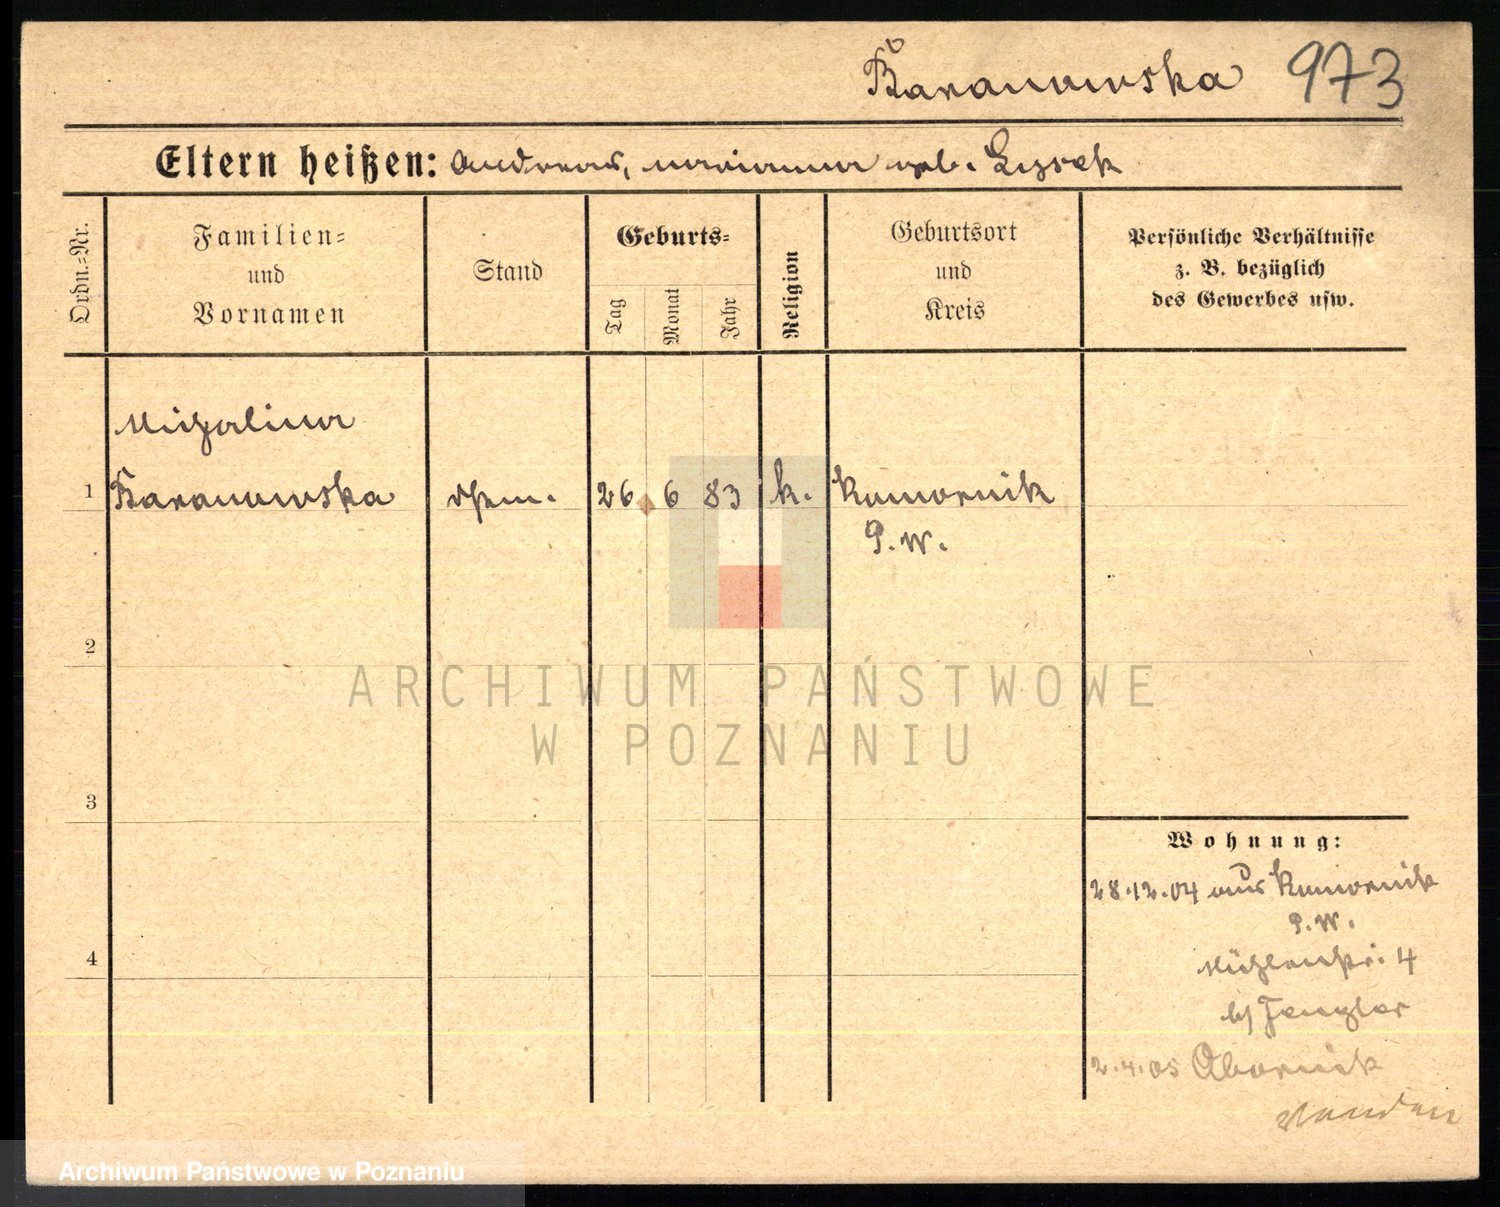 Baranowska 973
Eltern heißen: Andreas, Marianna geb. Lysek
Ordn.=Nr.
Familien=
und
Vornamen
Stand
Geburts=
Tag
Monat
Jahr
Religion
Geburtsort
und
Kreis
Persönliche Verhältnisse
z. B. bezüglich
des Gewerbes usw.
Michalina
1 Baranowska 26 6 83 k. Komornik
P. W.
2
3
4
Wohnung:
28.12.04 aus Komornik
P. W.
Mühlenstr. 4
b/ Fengler
2.4.05 Obornik
ARCHIWUM PAŃSTWOWE
W POZNANIU
Archiwum Państwowe w Poznaniu